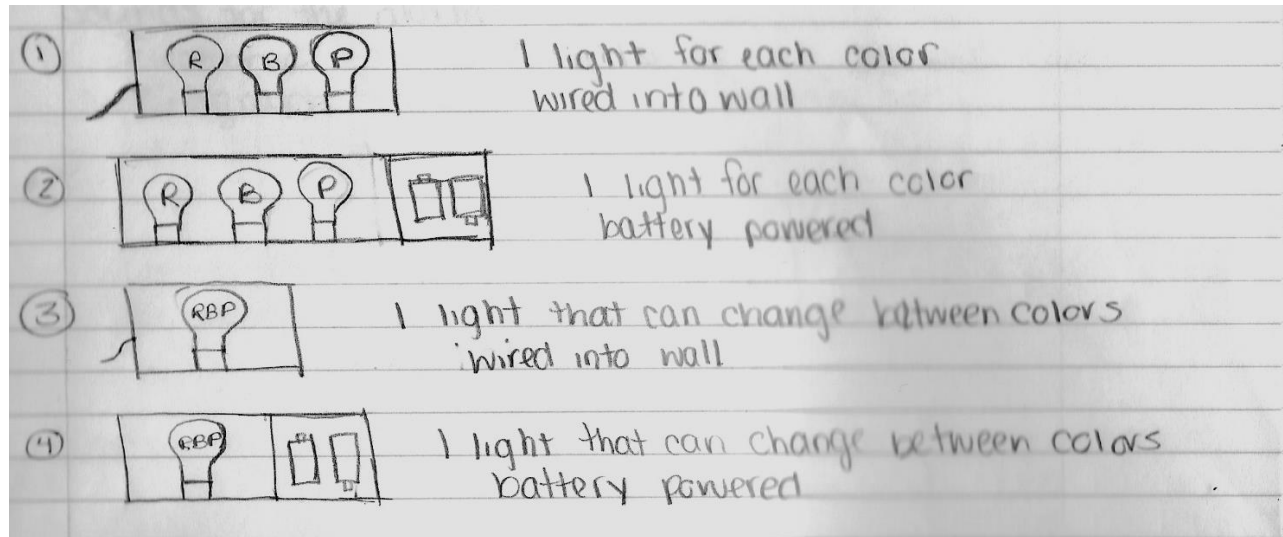 ① R B P 1 light for each color
wired into wall
② R B P 1 light for each color
battery powered
③ RBP 1 light that can change between colors
wired into wall
④ RBP 1 light that can change between colors
battery powered